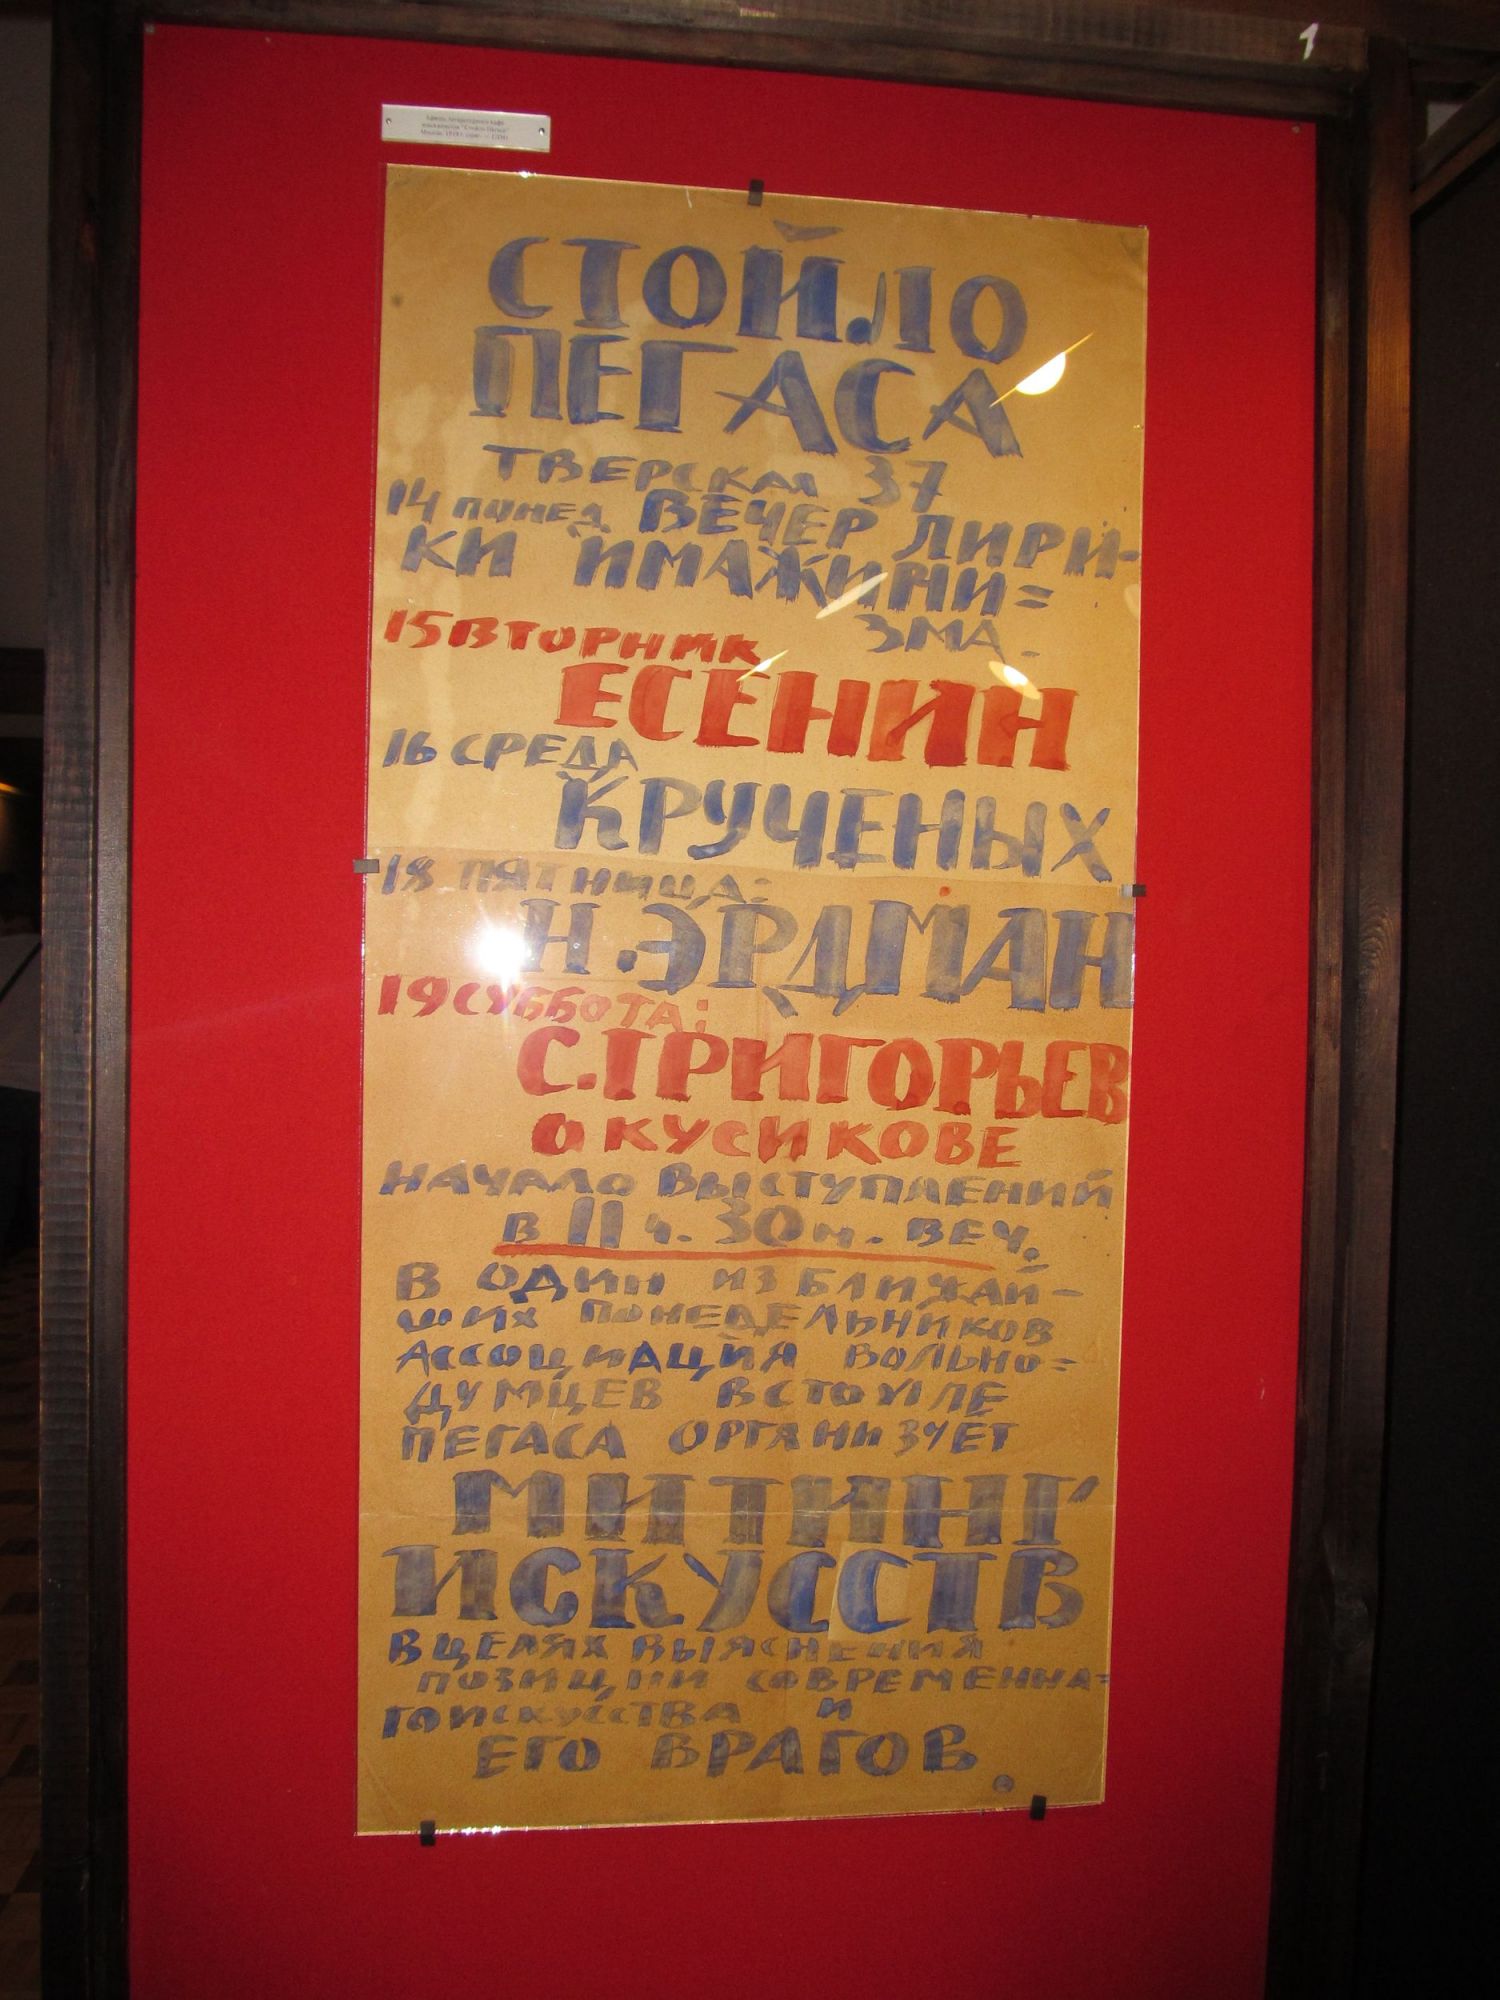 Афиша литературного кафе
имажинистов "Стойло Пегаса"
СТОЙЛО
ПЕГАСА
ТВЕРСКАЯ 37
14 ПОНЕД. ВЕЧЕР ЛИРИ-
КИ ИМАЖИНИ=
ЗМА.
15 ВТОРНИК
ЕСЕНИН
16 СРЕДА
КРУЧЕНЫХ
18 ПЯТНИЦА:
Н. ЭРДМАН
19 СУББОТА:
С. ГРИГОРЬЕВ
О КУСИКОВЕ
НАЧАЛО ВЫСТУПЛЕНИЙ
В 11 ч. 30 м. ВЕЧ.
В ОДИН ИЗ БЛИЖАЙ-
ШИХ ПОНЕДЕЛЬНИКОВ
АССОЦИАЦИЯ ВОЛЬНО=
ДУМЦЕВ В СТОЙЛЕ
ПЕГАСА ОРГАНИЗУЕТ
МИТИНГ
ИСКУССТВ
В ЦЕЛЯХ ВЫЯСНЕНИЯ
ПОЗИЦИИ СОВРЕМЕННА=
ГО ИСКУССТВА И
ЕГО ВРАГОВ.
1